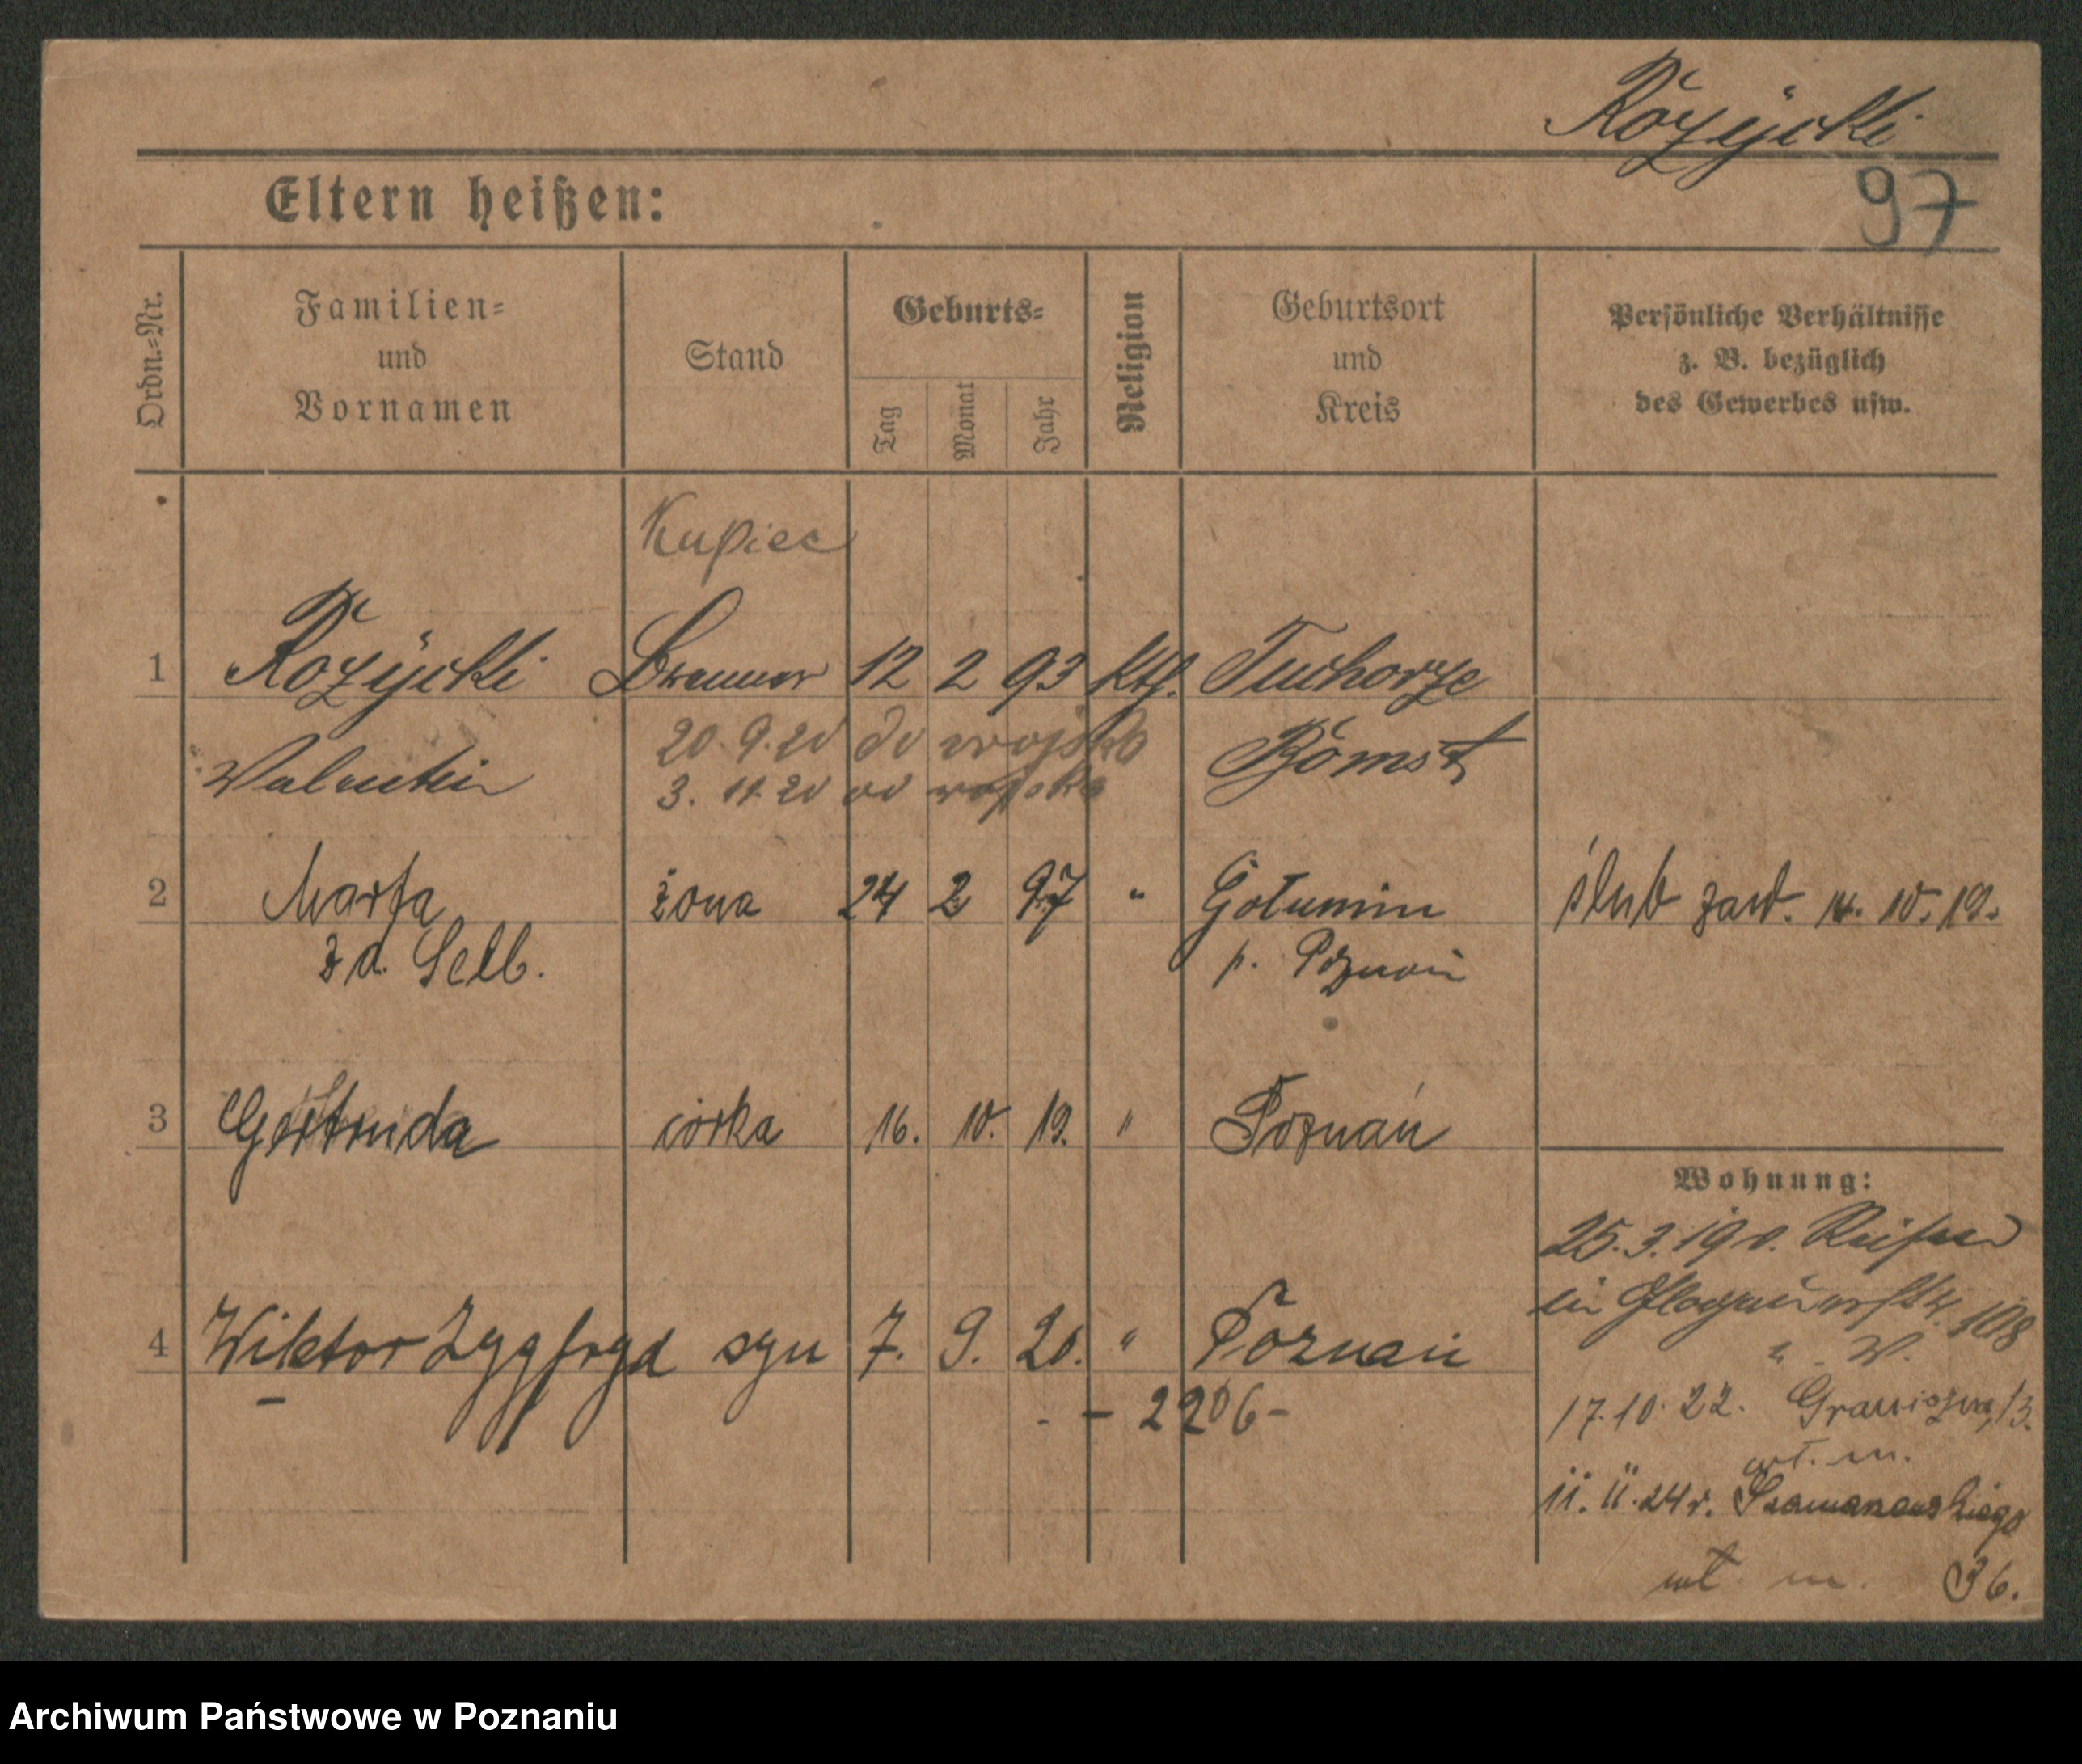 Rożÿcki
97
Eltern heißen:
Ordn.=Nr.
Familien=
und
Vornamen
Stand
Geburts=
Tag
Monat
Jahr
Religion
Geburtsort
und
Kreis
Persönliche Verhältnisse
z. B. bezüglich
des Gewerbes usw.
Kupiec
1 Rożÿcki 12 2 93 kth. Tuchorze
Valentin 20.9.20 do wojska Bomst
3. 11.20 od wojska
2 Marta żona 24 2 97 " Golumin ślub zawd. 14. 10. 19.
z d. Selb. p. Poznań
3 Gertruda córka 16. 10. 19. " Poznań
Wohnung:
25.3.190.
108
4 Wiktor Zygfryd syn 7. 9. 20. " Poznań
" W.
- 2206 -
17.10.22. 13.
wł. m.
11. 11. 24 r. Szamarzewskiego
wł. m. 36.
Archiwum Państwowe w Poznaniu